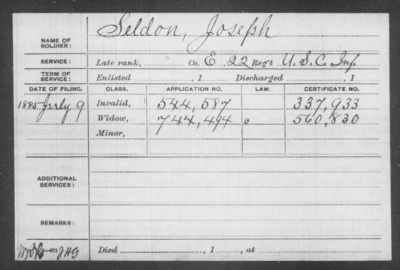 NAME OF SOLDIER: Seldon, Joseph
SERVICE: Late rank, Co. E, 22 Reg't U. S. C. Inf.
TERM OF SERVICE: Enlisted , 1 Discharged , 1
DATE OF FILING. CLASS. APPLICATION NO. LAW. CERTIFICATE NO.
1885 July 9 Invalid, 544,587 337,933
Widow, 744,494 560,830
Minor,
ADDITIONAL SERVICES:
REMARKS:
Died , 1 , at